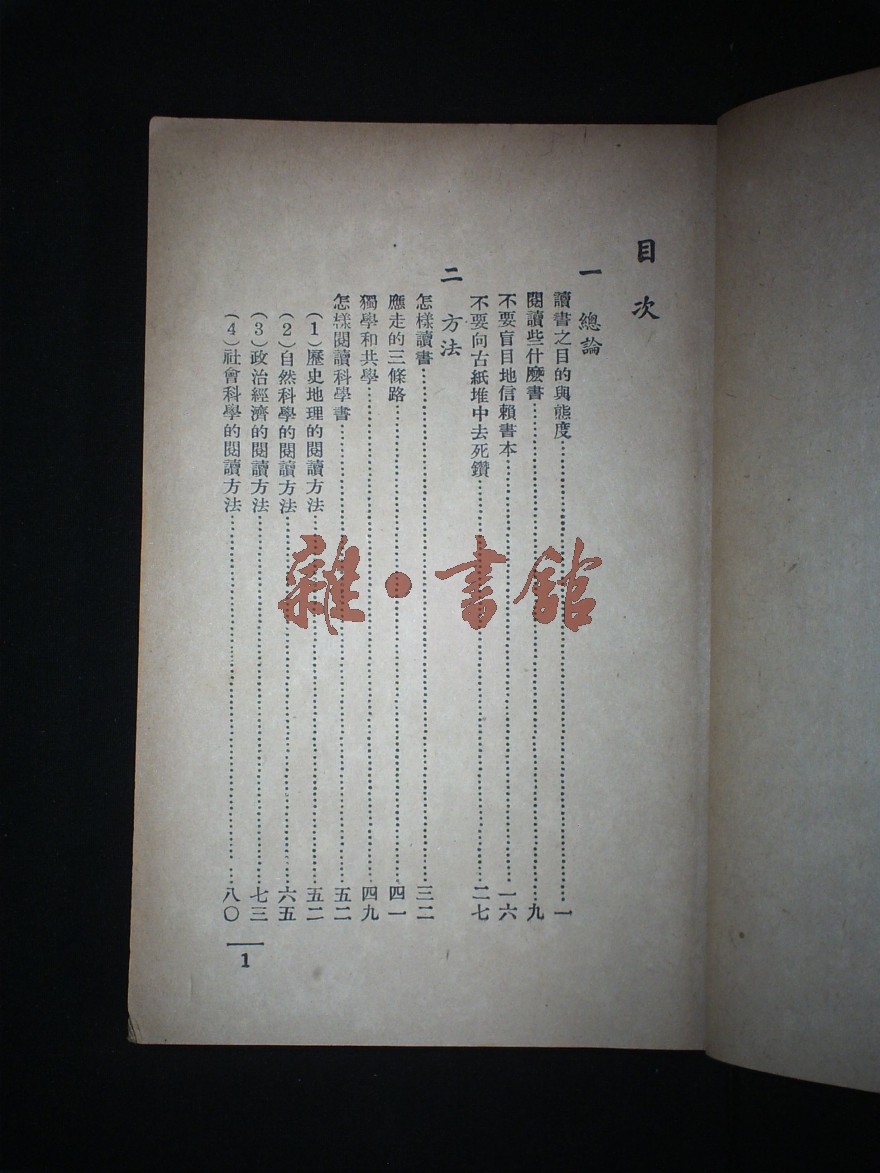 目次
一 總論
讀書之目的與態度……一
閱讀些什麽書……九
不要盲目地信賴書本……一六
不要向古紙堆中去死鑽……二七
二 方法
怎樣讀書……三二
應走的三條路……四一
獨學和共學……四九
怎樣閱讀科學書……五二
(1)歷史地理的閱讀方法……五二
(2)自然科學的閱讀方法……六五
(3)政治經濟的閱讀方法……七三
(4)社會科學的閱讀方法……八〇
1
雜·書館